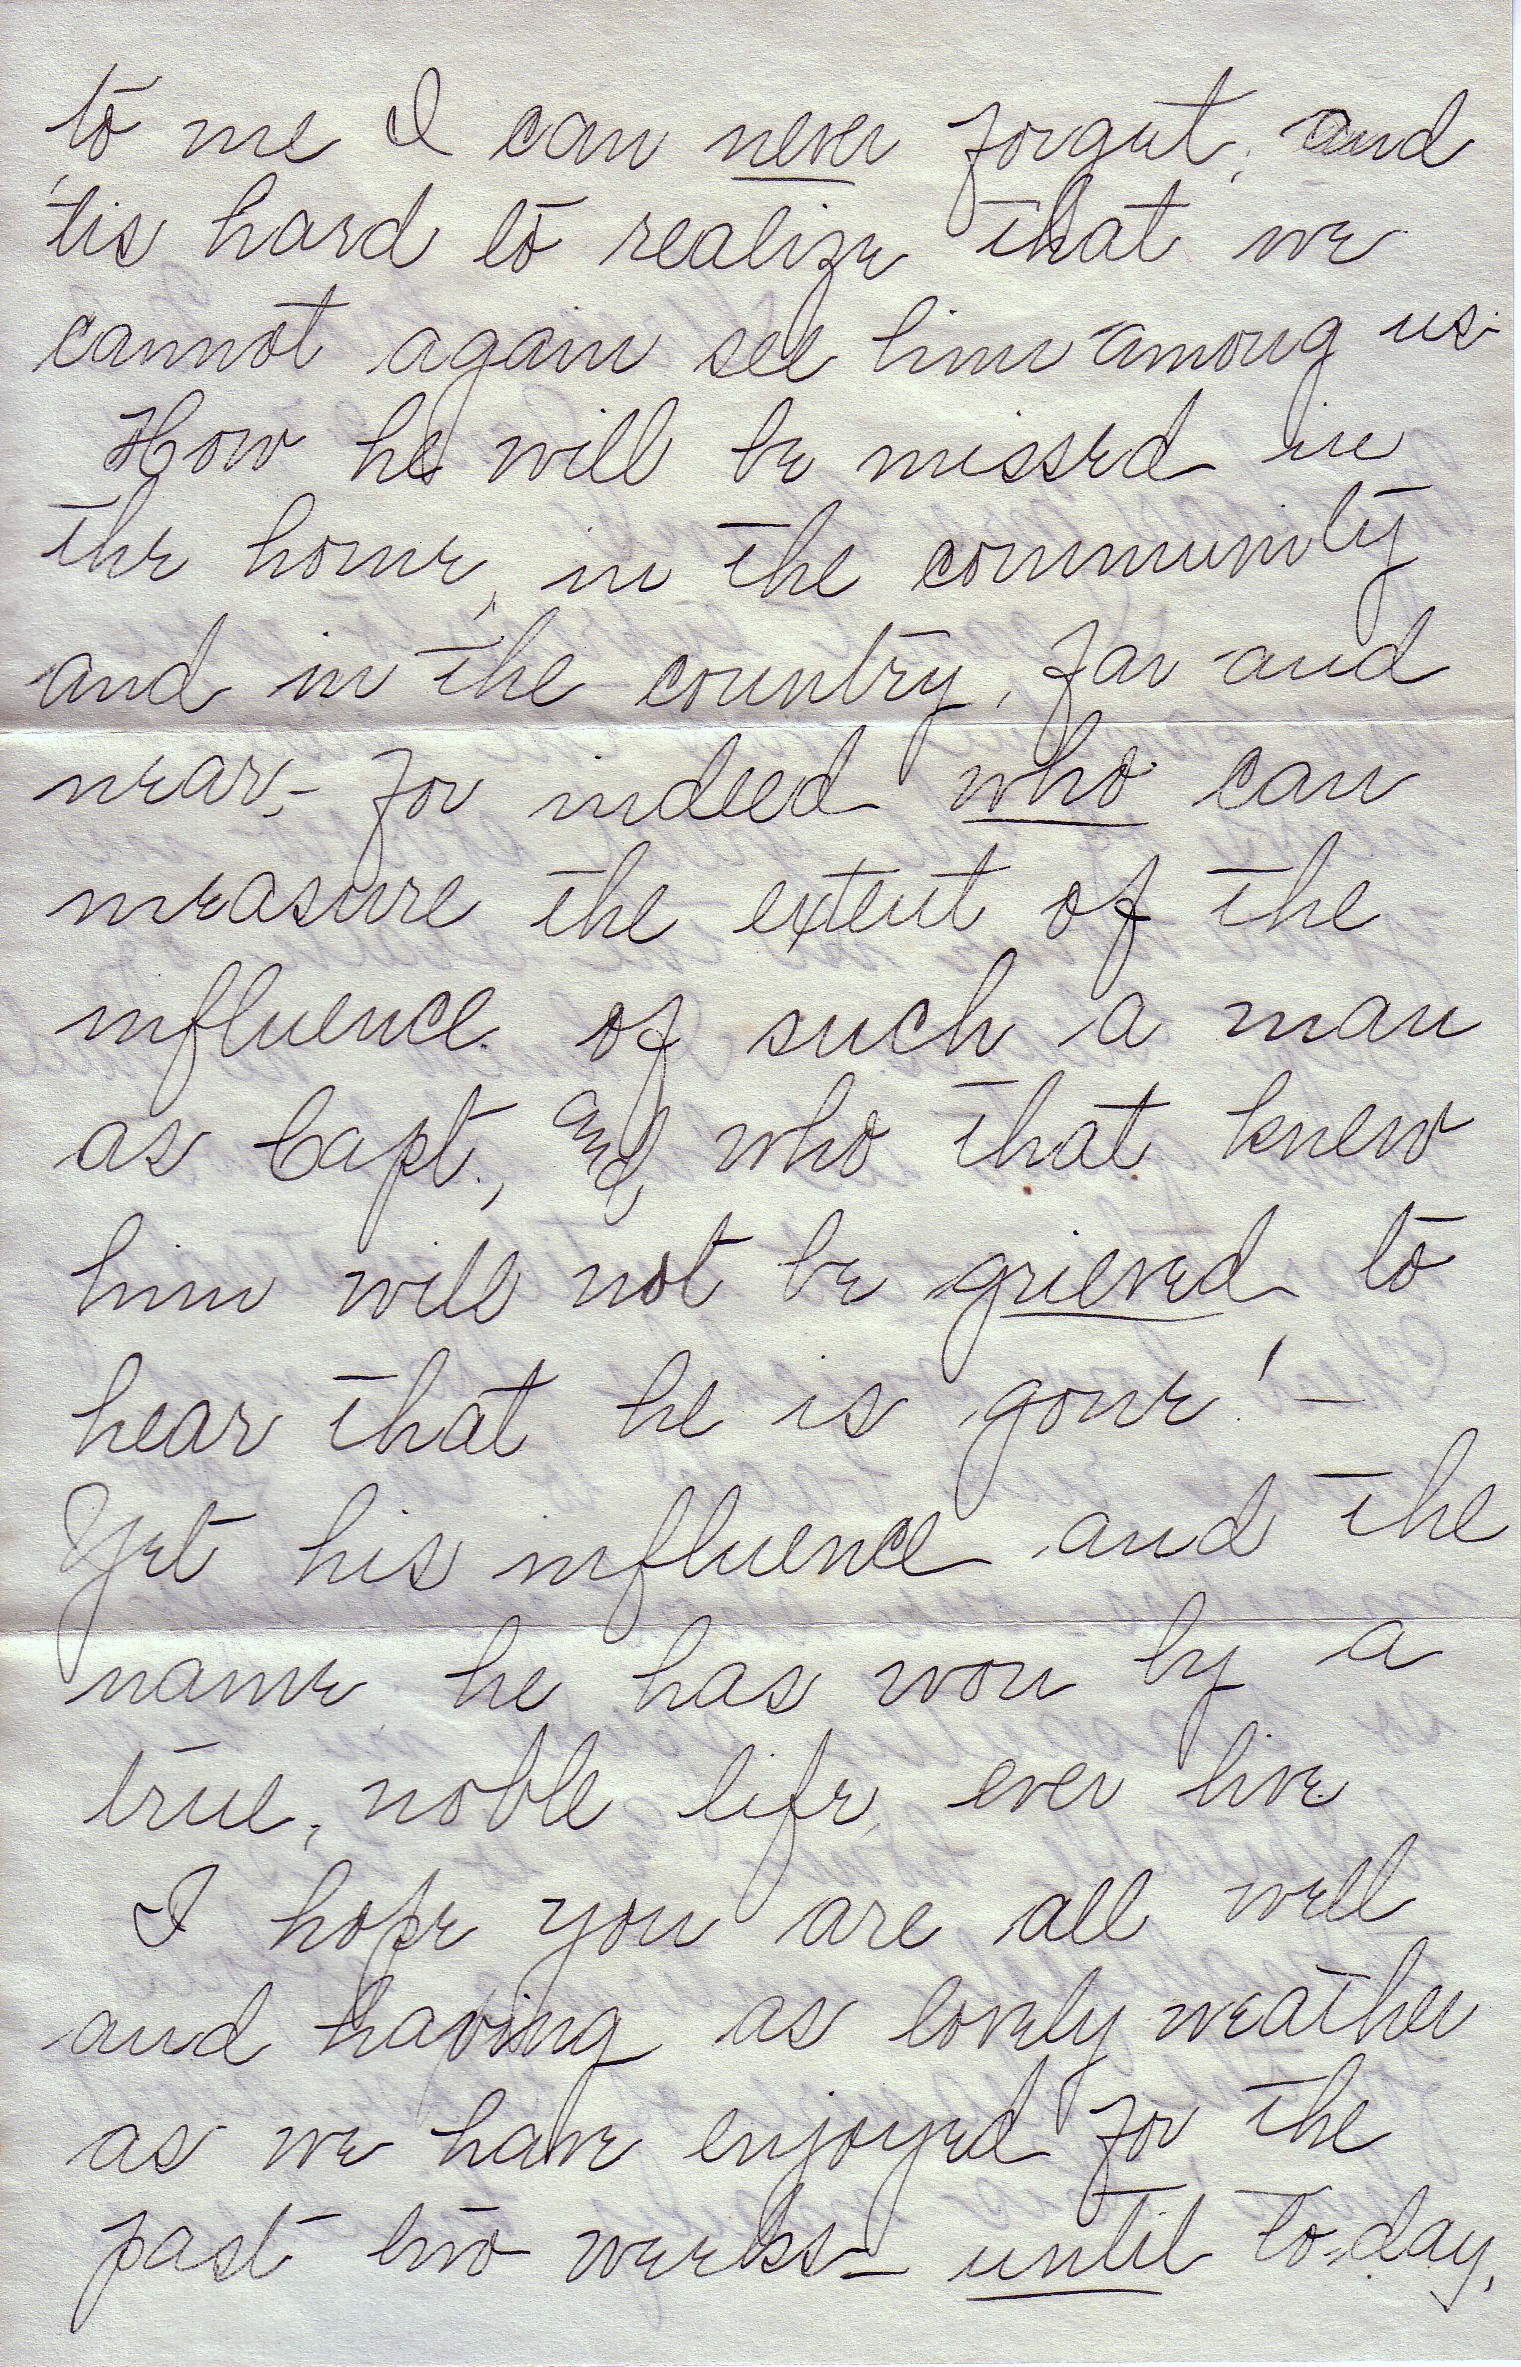 to me I can never forget, and
'tis hard to realize that we
cannot again see him among us.
How he will be missed in
the home, in the community
and in the country, far and
near,- for indeed who can
measure the extent of the
influence of such a man
as Capt., and who that knew
him will not be grieved to
hear that he is gone! —
Yet his influence and the
name he has won by a
true, noble life, ever live
I hope you are all well
and having as lovely weather
as we have enjoyed for the
past two weeks — until to-day,